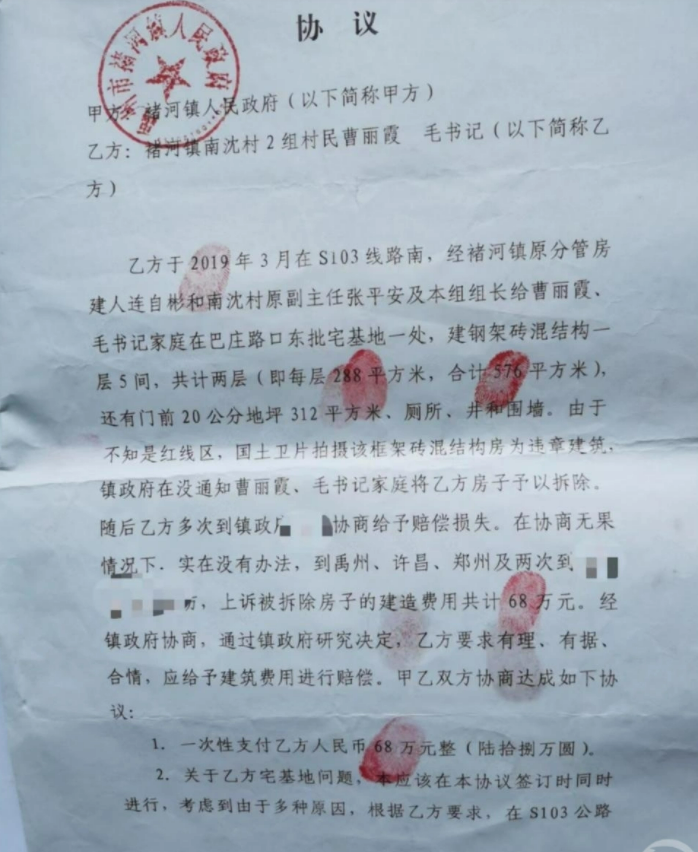 协 议
市褚河镇人民政府
甲方：褚河镇人民政府（以下简称甲方）
乙方：褚河镇南沈村2组村民曹丽霞 毛书记（以下简称乙
方）
乙方于2019年3月在S103线路南，经褚河镇原分管房
建人连自彬和南沈村原副主任张平安及本组组长给曹丽霞、
毛书记家庭在巴庄路口东批宅基地一处，建钢架砖混结构一
层5间，共计两层（即每层288平方米，合计576平方米），
还有门前20公分地坪312平方米、厕所、井和围墙。由于
不知是红线区，国土卫片拍摄该框架砖混结构房为违章建筑，
镇政府在没通知曹丽霞、毛书记家庭将乙方房子予以拆除。
随后乙方多次到镇政 协商给予赔偿损失。在协商无果
情况下．实在没有办法，到禹州、许昌、郑州及两次到
，上诉被拆除房子的建造费用共计68万元。经
镇政府协商，通过镇政府研究决定，乙方要求有理、有据、
合情，应给予建筑费用进行赔偿。甲乙双方协商达成如下协
议：
1．一次性支付乙方人民币68万元整（陆拾捌万圆）。
2．关于乙方宅基地问题，本应该在本协议签订时同时
进行，考虑到由于多种原因，根据乙方要求，在S103公路